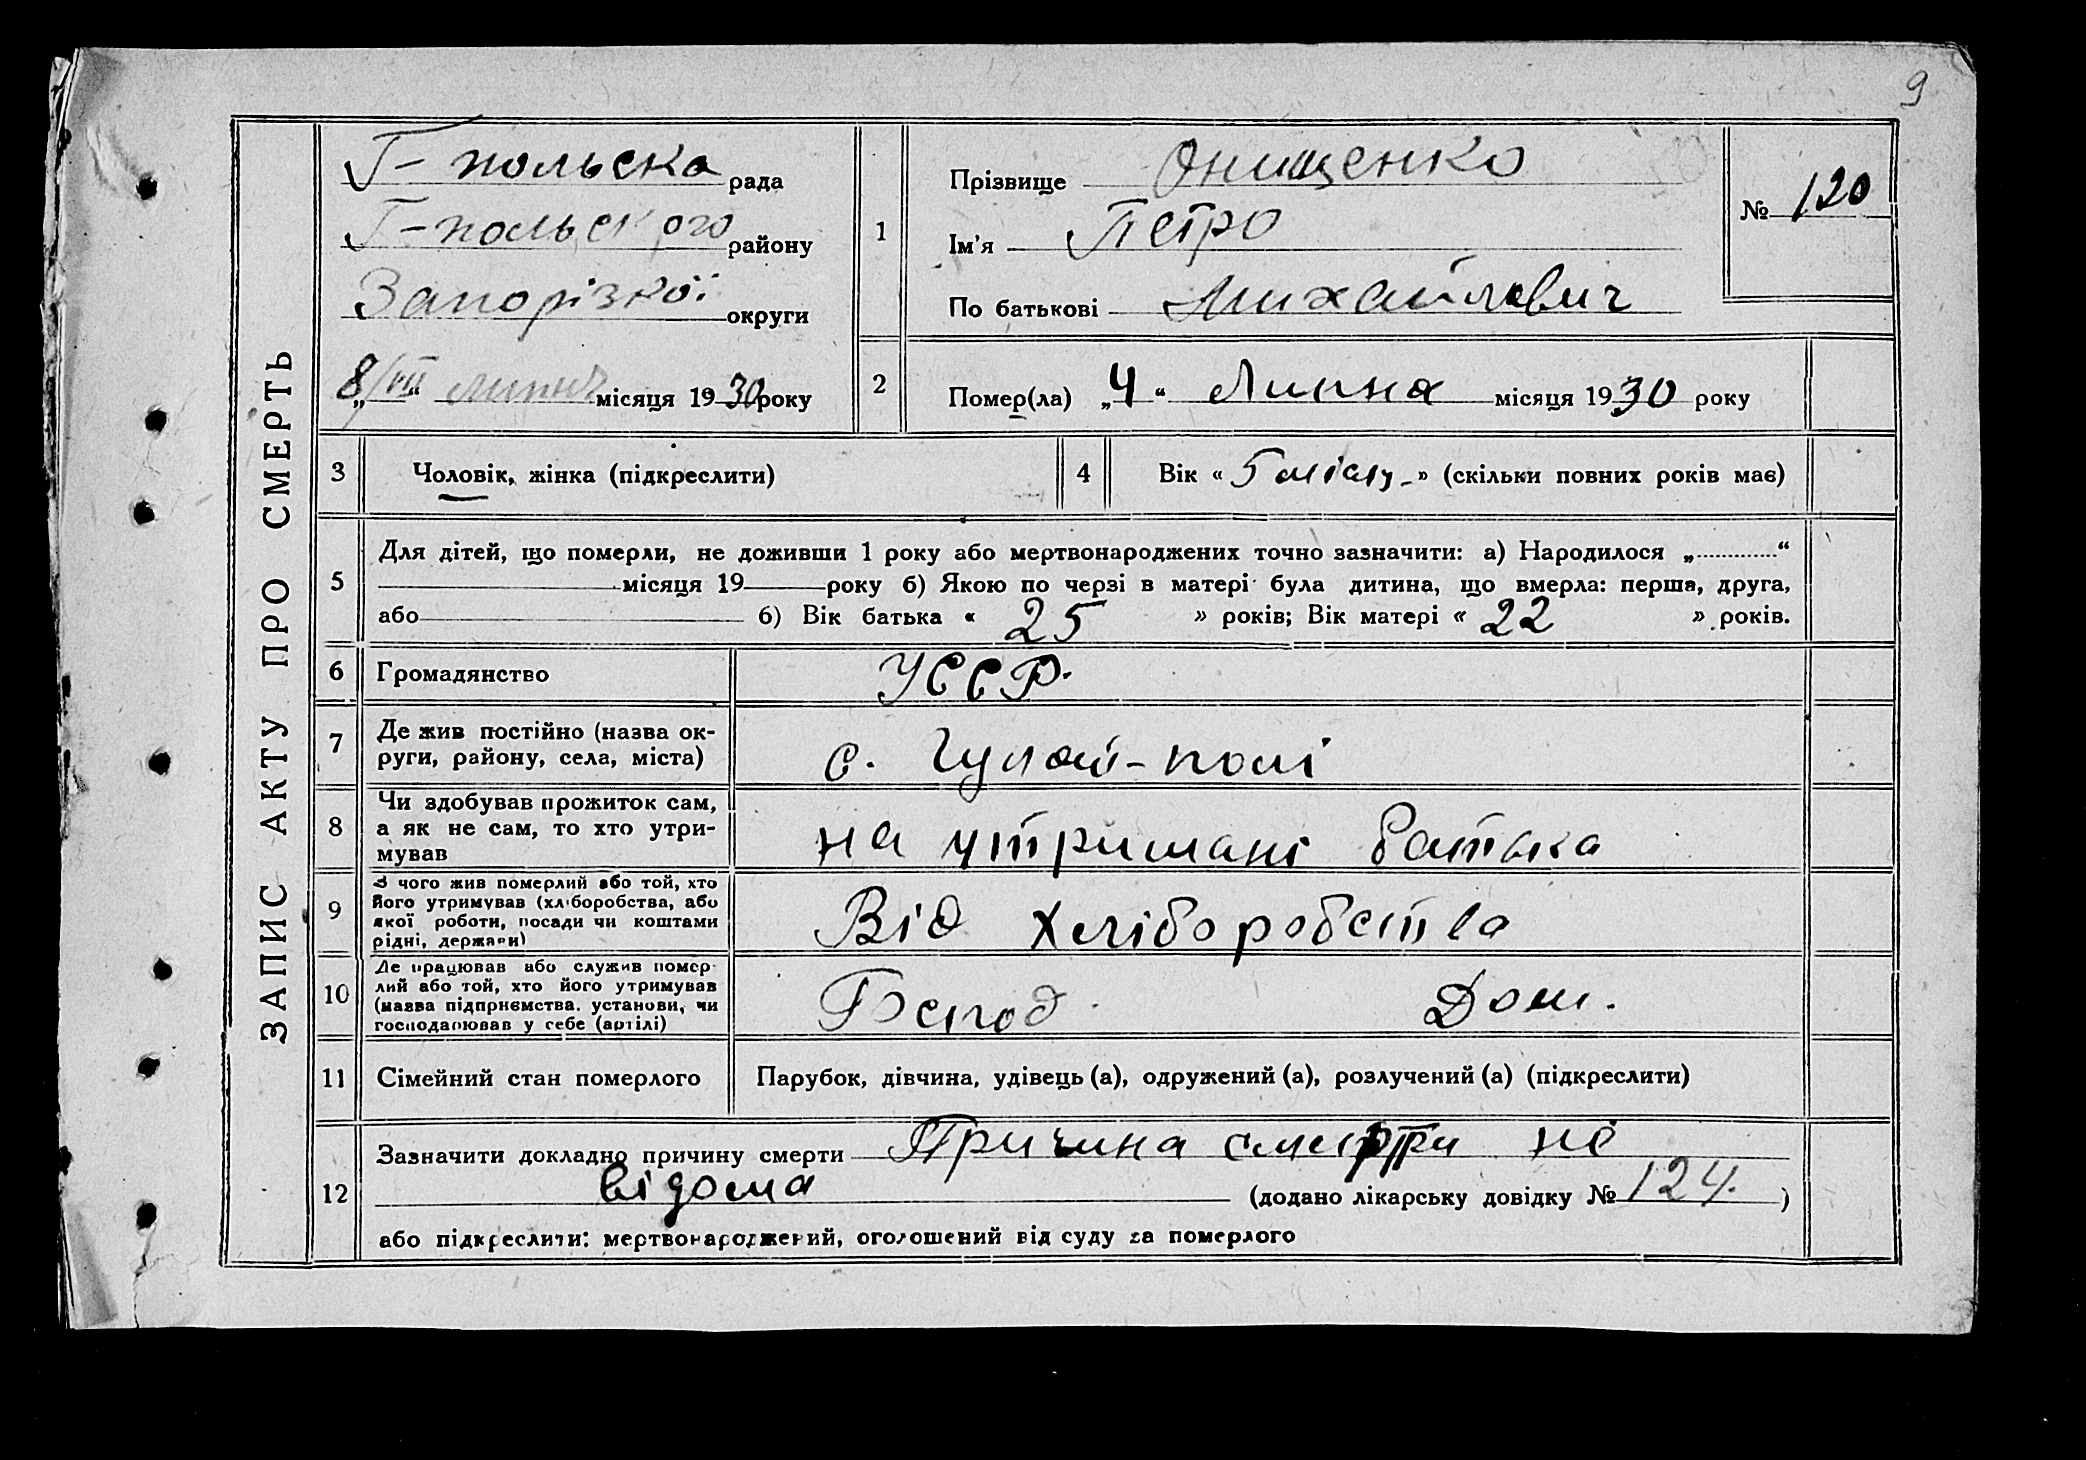 9
ЗАПИС АКТУ ПРО СМЕРТЬ
Г-польска рада
Г-польского району
Запорізкої округи
„8/VII“ липня місяця 1930 року
1
Прізвище Онищенко
Ім’я Петро
По батькові Михайлович
№ 120
2
Помер(ла) „4“ Липня місяця 1930 року
3
Чоловік, жінка (підкреслити)
4
Вік « 5 місяц- » (скільки повних років має)
5
Для дітей, що померли, не доживши 1 року або мертвонароджених точно зазначити: а) Народилося „............“
місяця 19 року б) Якою по черзі в матері була дитина, що вмерла: перша, друга,
або б) Вік батька « 25 » років; Вік матері « 22 » років.
6
Громадянство
УССР.
7
Де жив постійно (назва ок-
руги, району, села, міста)
с. Гуляй-полі
8
Чи здобував прожиток сам,
а як не сам, то хто утри-
мував
на утримані батька
9
З чого жив померлий або той, хто
його утримував (хліборобства, або
якої роботи, посади чи коштами
рідні, держави)
Від хліборобства
10
Де працював або служив помер-
лий або той, хто його утримував
(назва підприємства, установи, чи
господарював у себе (артілі)
Дом.
11
Сімейний стан померлого
Парубок, дівчина, удівець (а), одружений (а), розлучений (а) (підкреслити)
12
Зазначити докладно причину смерти Причина смерти не
відома (додано лікарську довідку № 124. )
або підкреслити: мертвонароджений, оголошений від суду за померлого